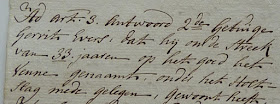 Ad art. 3. antwoord 2de Getuige
Gerrit Evers: dat hij omtr. Streek
van 33. jaaren op het goed het
Jenne genaamt, onder het Holt-
slag mede gelegen, gewoont heeft